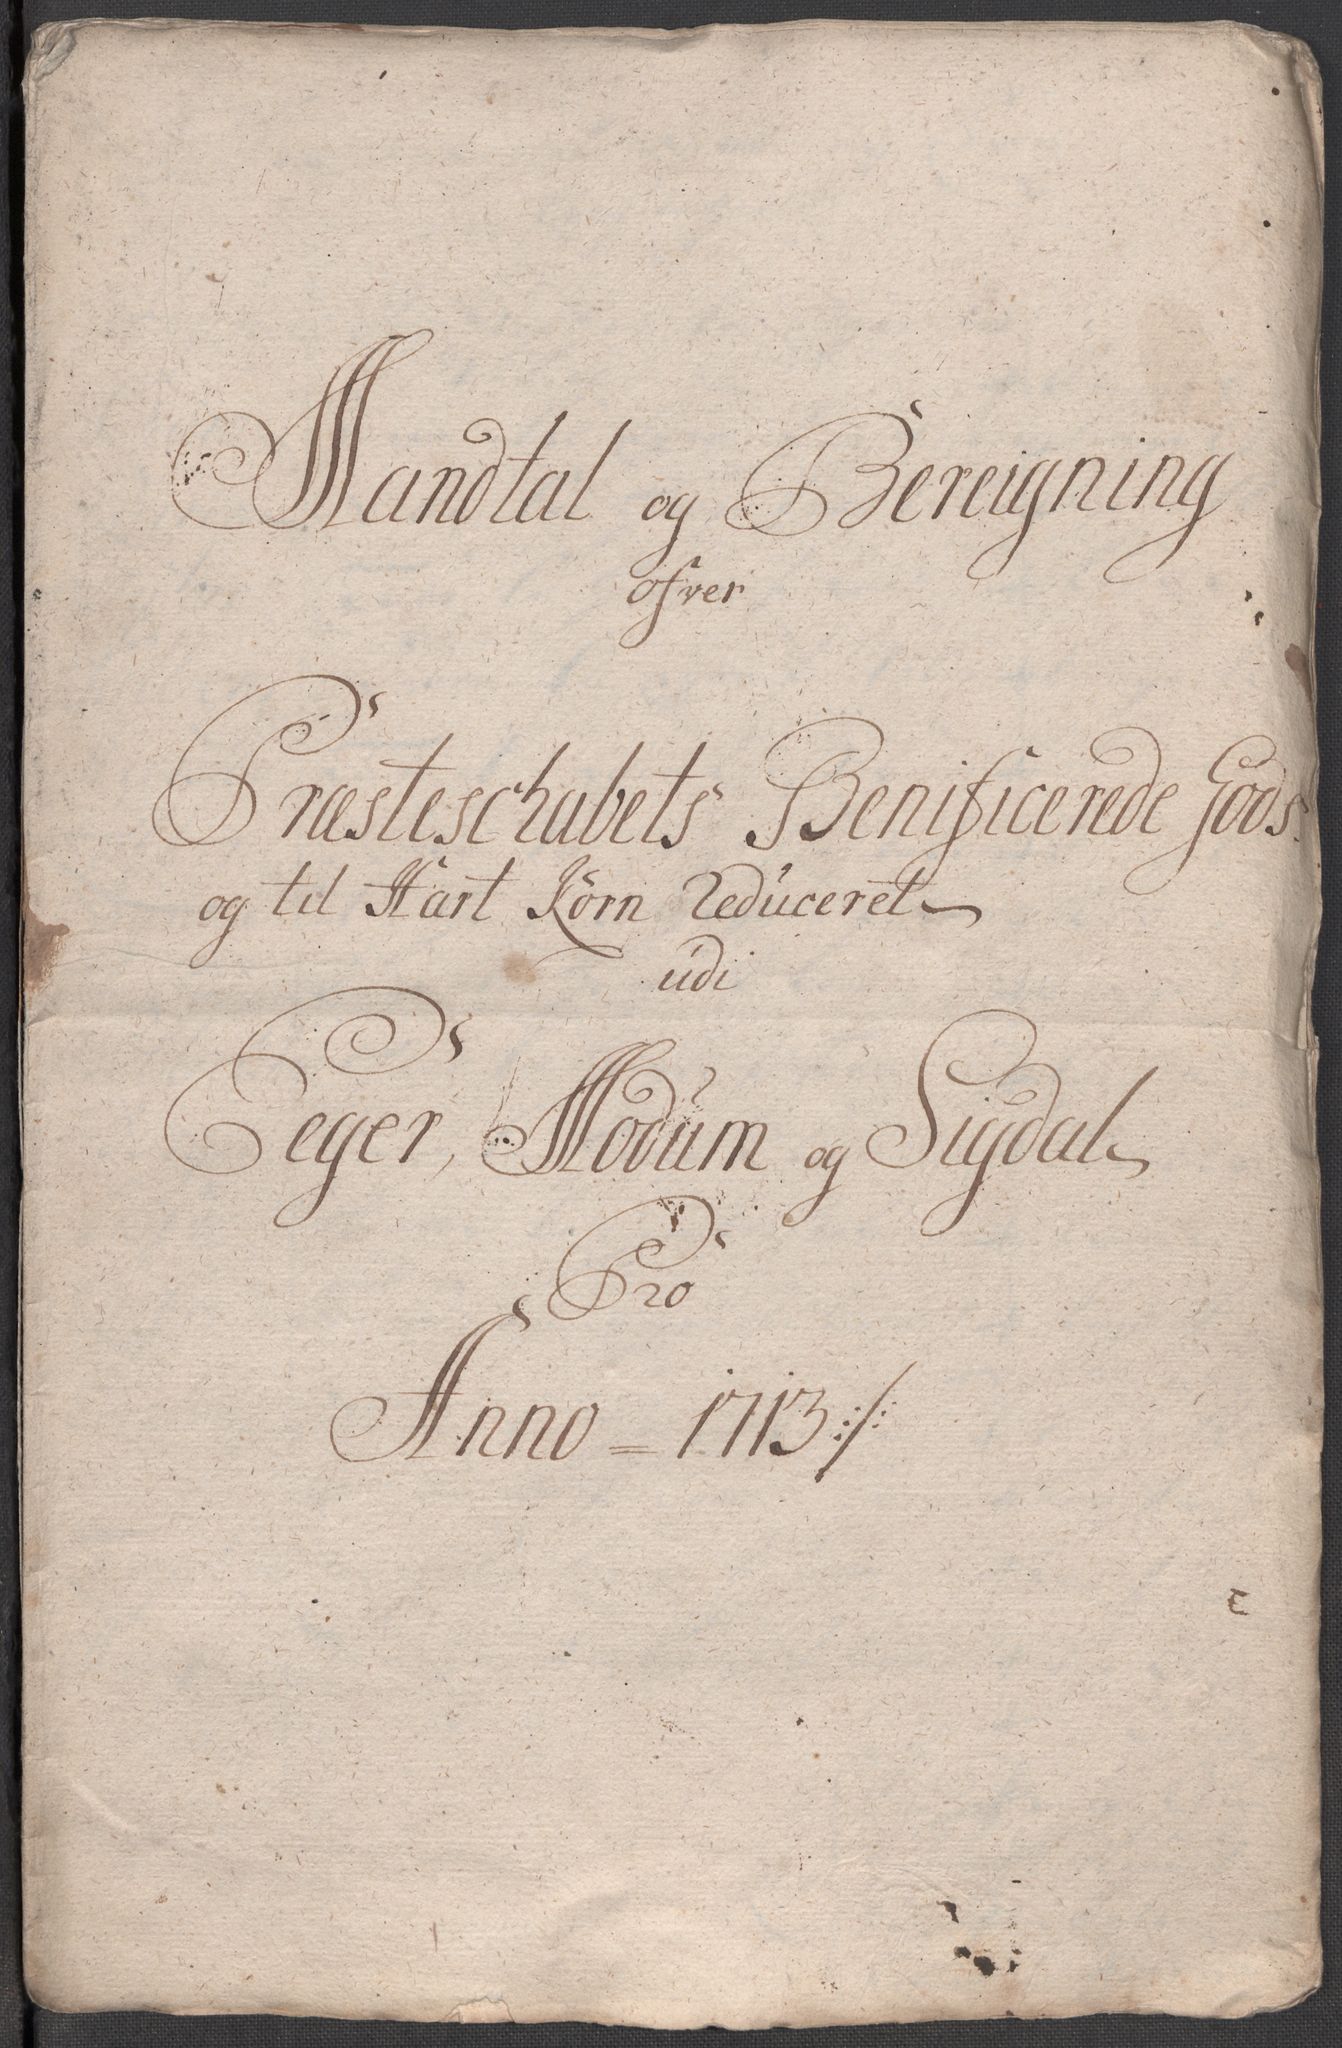 Mandtal og Bereigning
ofver
Præsteschabets Benificerede Gods
og til Hart Korn Reduceret
udi
Eeger, Modum og Sigdal
Pro
Anno = 1713 ./.